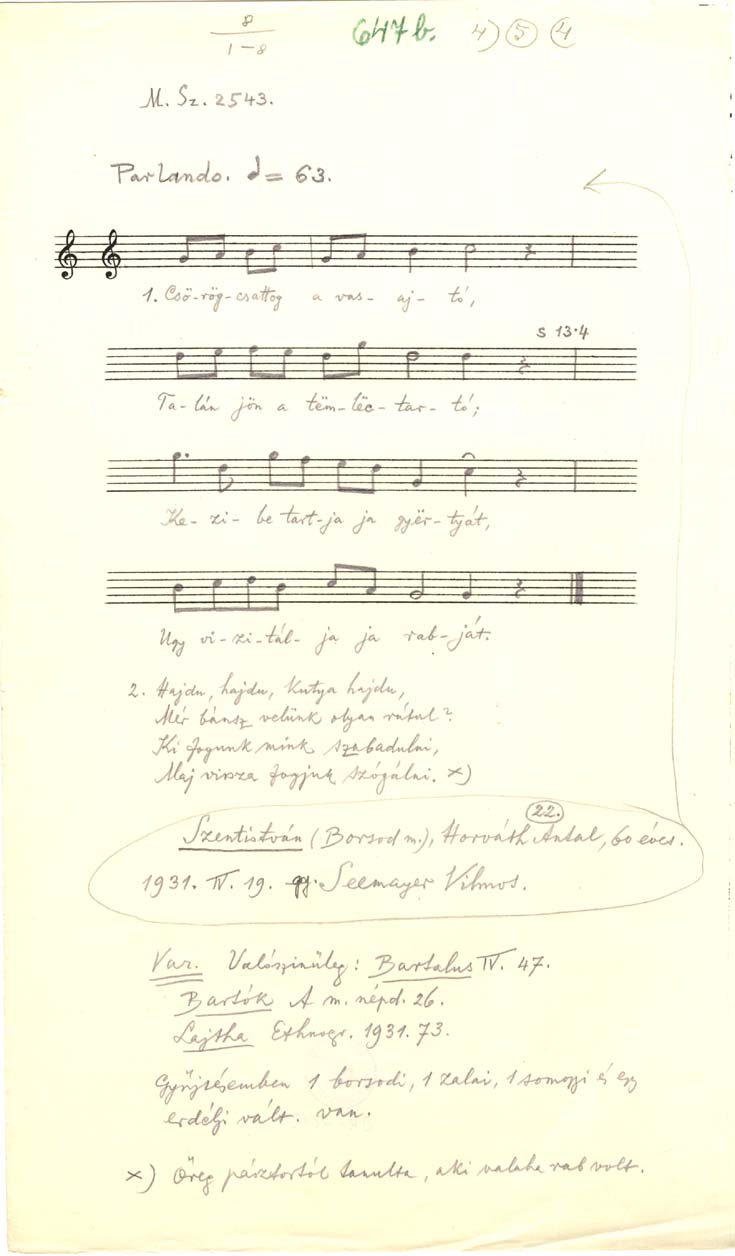 8
1-8
647b. 4) 5 4
M. Sz. 2543.
Parlando. = 63.
1. Csö-rög-csattog a vas- aj- tó,
S 13·4
Ta-lán jön a tëm-lëc-tar-tó;
Ke- zi- be tart-ja ja gyër-tyát,
Ugy vi-zi-tál- ja ja rab-ját.
2. Hajdu, hajdu, kutya hajdu,
Mér bánsz velünk olyan rútul?
Ki fogunk mink szabadulni,
Maj vissza fogjuk szógálni. x)
22.
Szentistván (Borsod m.), Horváth Antal, 60 éves.
1931. IV. 19. gy. Seemayer Vilmos.
Var. Valószinüleg: Bartalus IV. 47.
Bartók A m. népd. 26.
Lajtha Ethnogr. 1931. 73.
Gyűjtésemben 1 borsodi, 1 zalai, 1 somogyi és egy
erdélyi vált. van.
x) Öreg pásztortól tanulta, aki valaha rab volt.